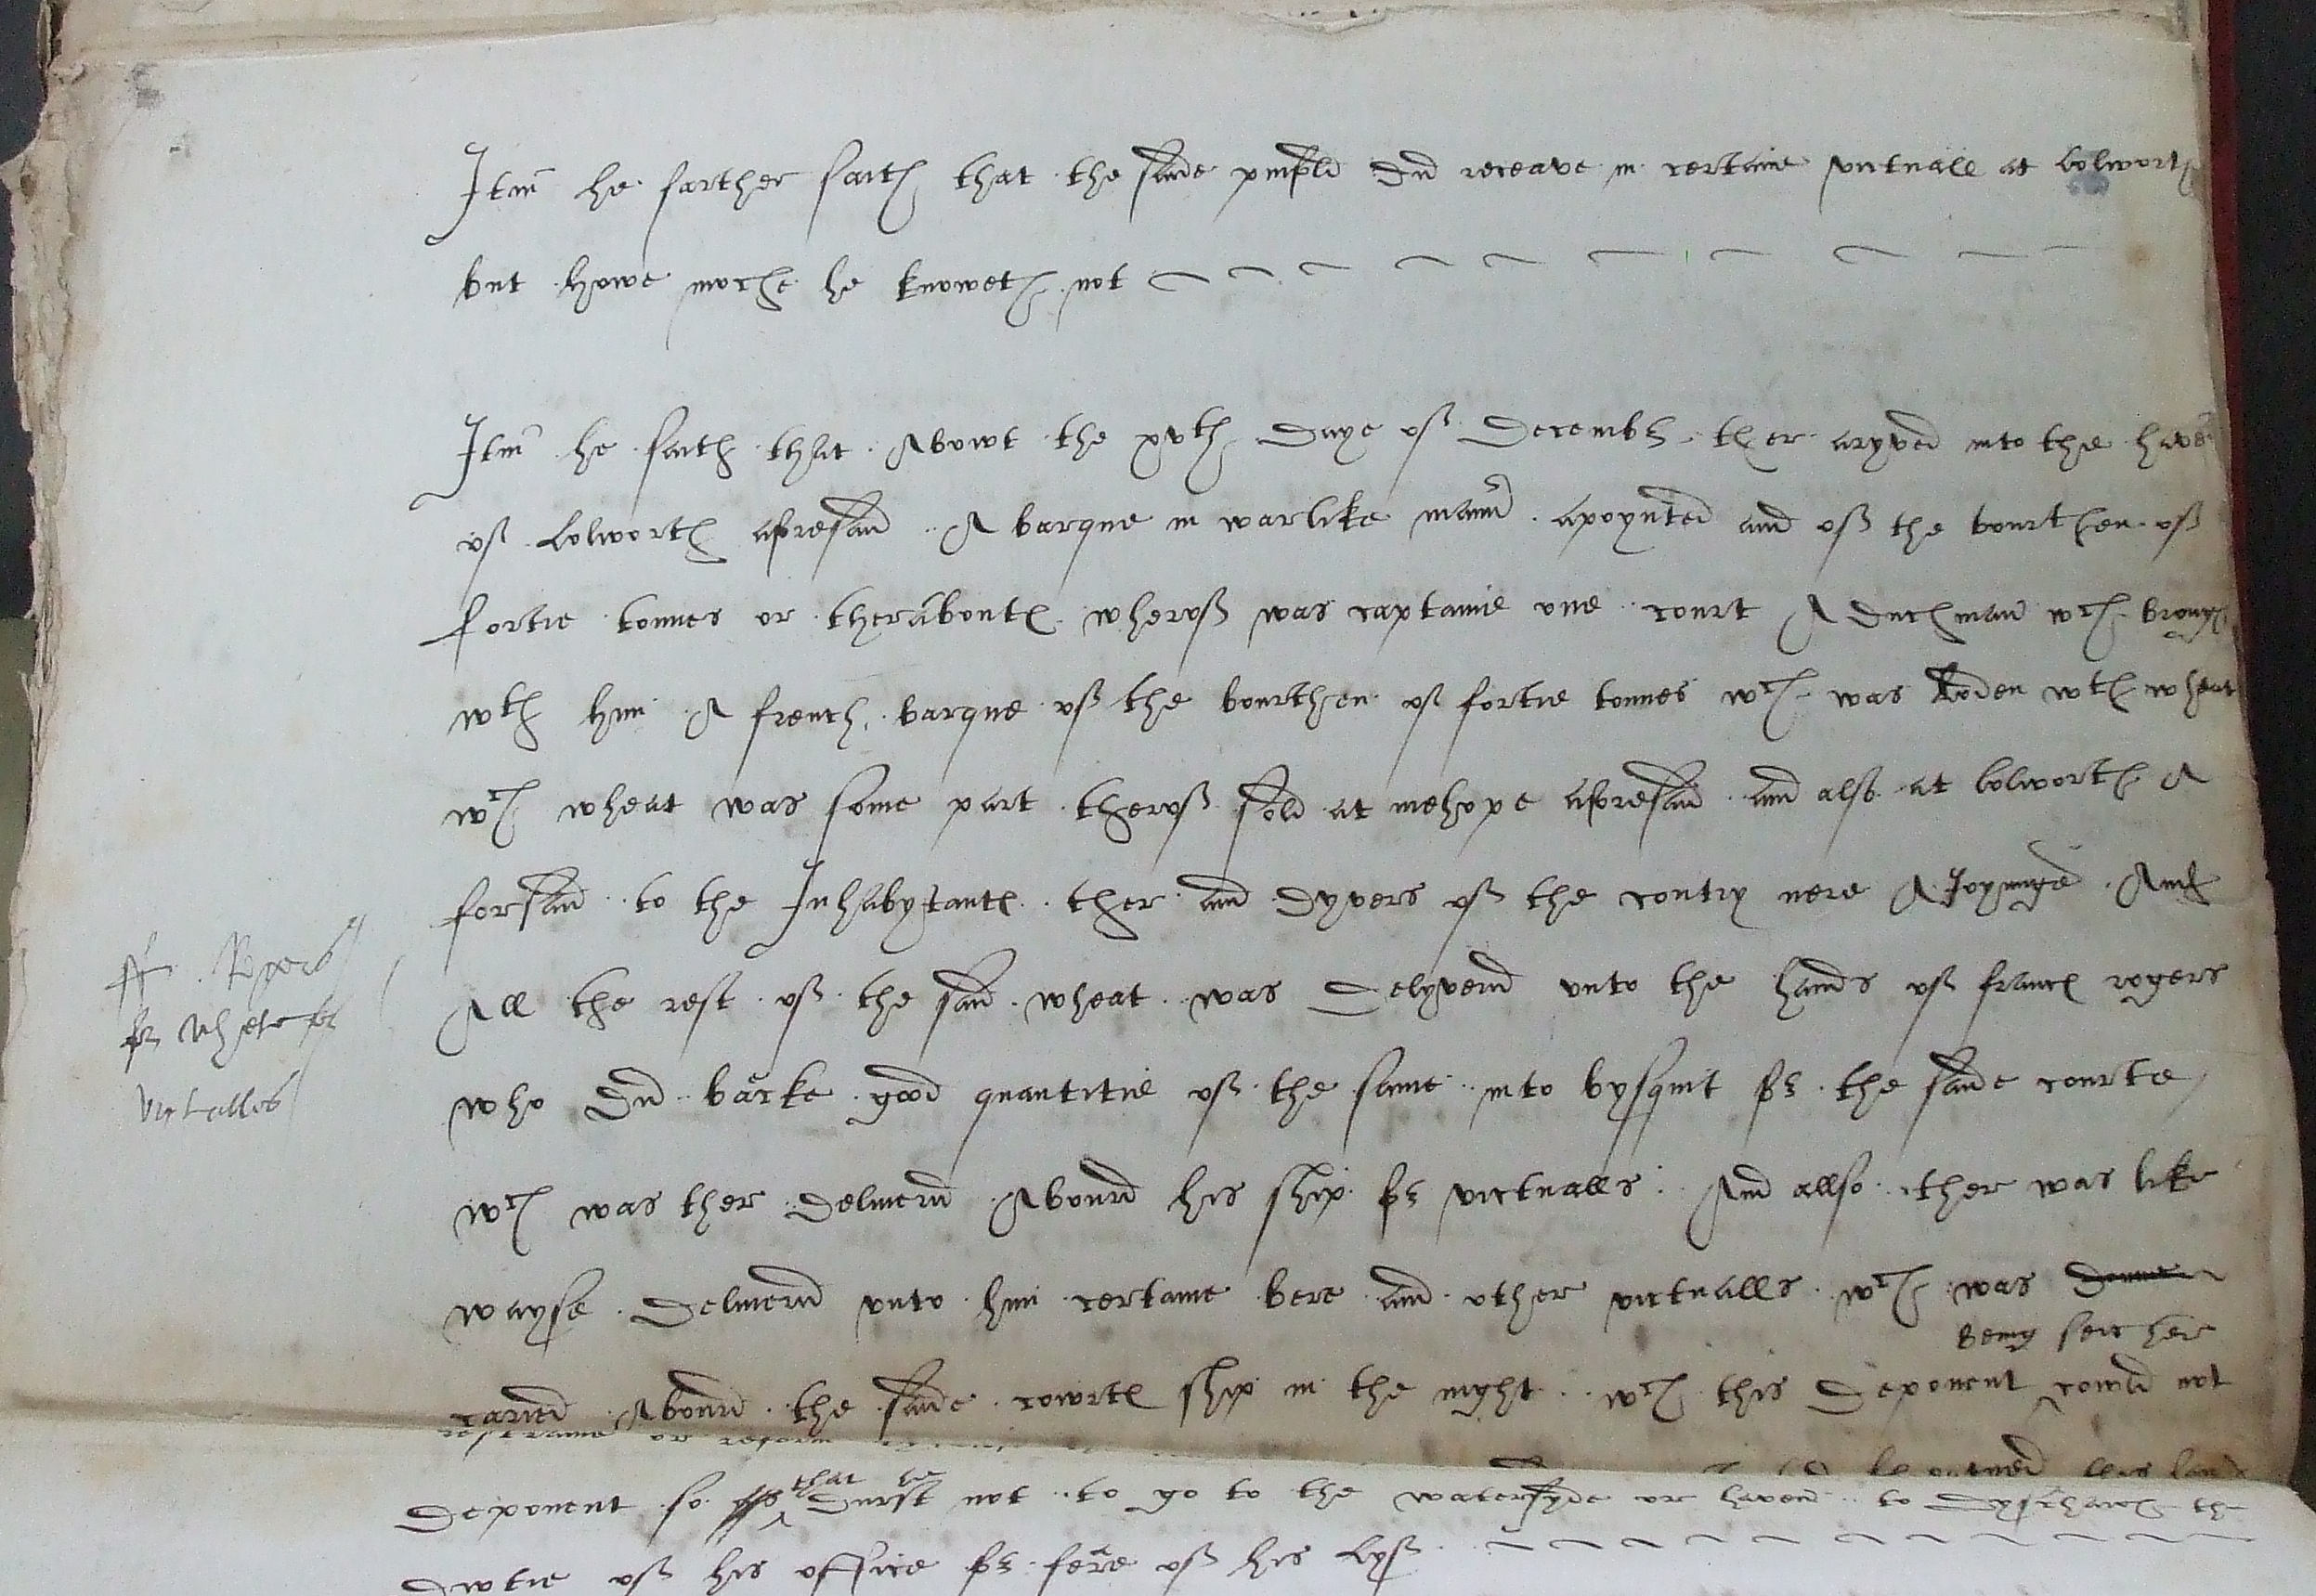 Itm̃ he farther saith that the saide pinfold did receave in certaine victuall at lolworth
but howe moche he knoweth not
Itm̃ he saith that Abowt the xvth daye off Decemb ther aryved into the haven
off lolworth aforesaid A barque in warlike mann apoynted and off the bourthen off
fortie tonnes or theraboutes wheroff was captaine one court A duchman wch brought
wth him A french barque off the bourthen off fortie tonnes wch was loden wth wheat
wch wheat was some part theroff sold at mehope aforesaid and also at lolworth A
forsaid to the Inhabytantes ther and dyvers off the contry nere A Joyninge And
All the rest off the said wheat was delyverid unto the hands off frances rogers
who did backe good quantitie off the same into bysquit for the saide courte
wch was ther deliverid Abourd his ship for victualls And allso ther was like
wayse deliverid unto him certaine bere and other victualls wch was
Being sercher
caried Abourd the saide cowrtes ship in the nyght wch this deponent could not
restraine or reform
deponent so that he durst not to go to the watersyde or haven to dyscharge the
dwtie off his office for feare off his lyff
ff Rogers
for Whete for
victalles